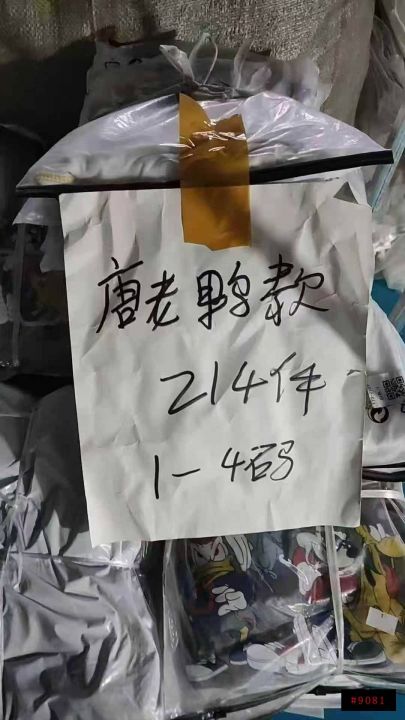 唐老鸭款
214件
1-4码
#9081